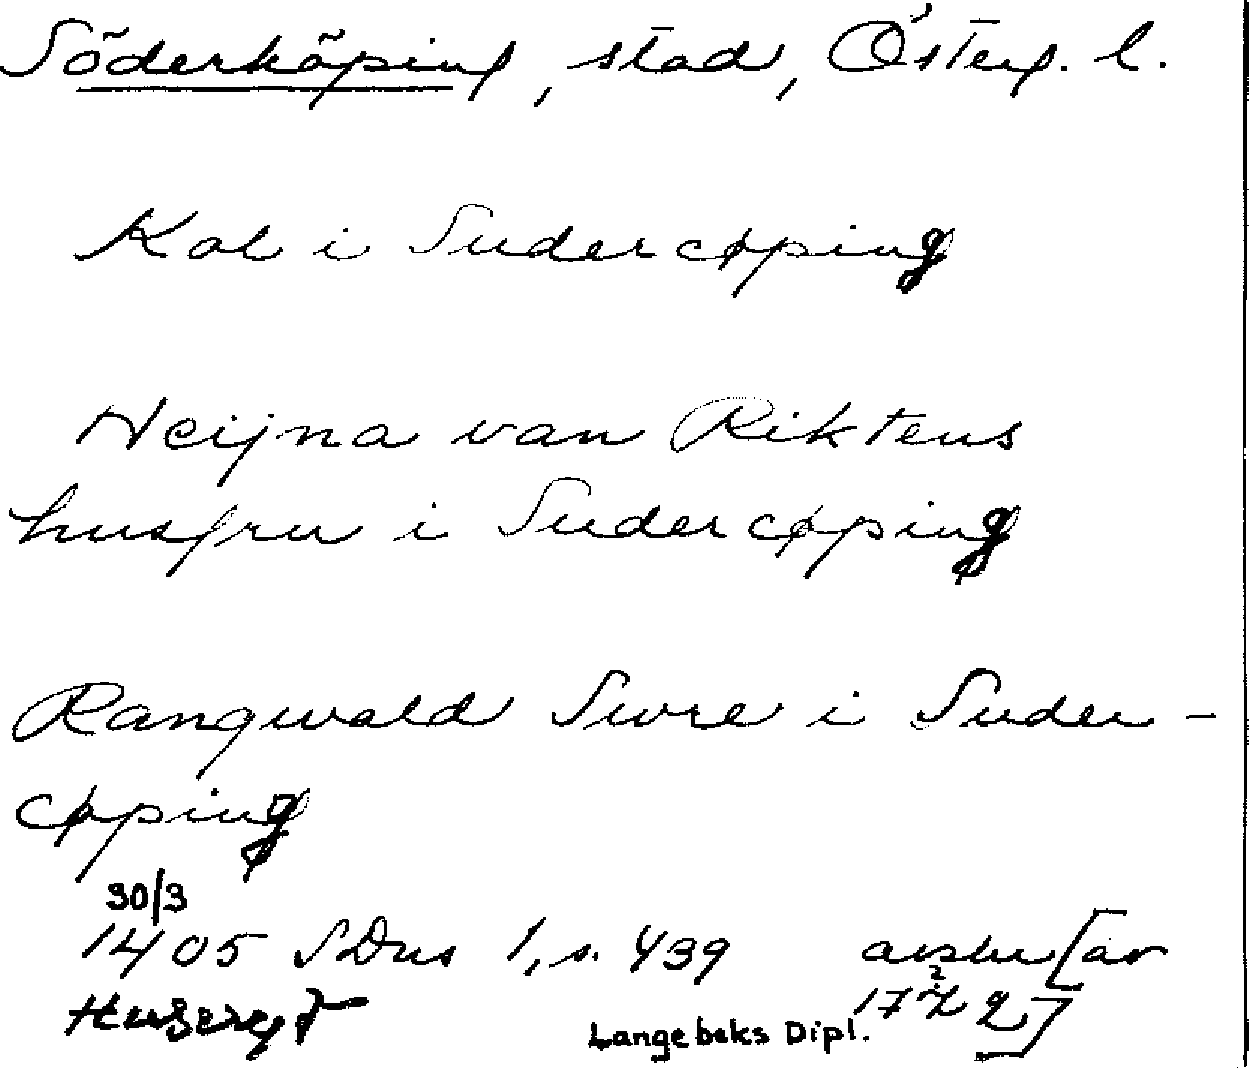 Söderköping, stad, Österg. l.
Kol i Sudercøping
Heijna van Riktens
husfru i Sudercøping
Rangwald Swre i Suder-
cøping
30/3
1405 SDns 1, s. 439 avskr [av
Langebeks Dipl. 1722]